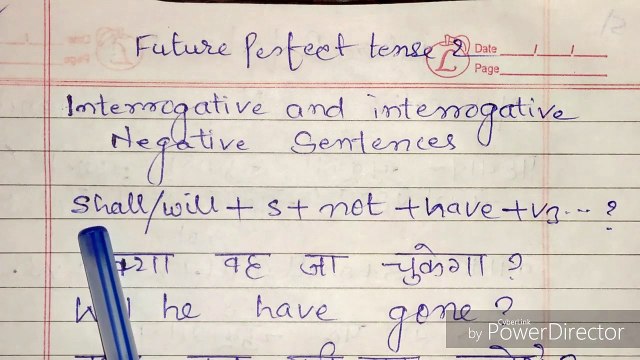 Future Perfect tense :
Date / /
Page
Interrogative and interrogative
Negative Sentences
Shall/will + s + not + have + v3 ... ?
वह जा चुकेगा ?
he have gone ?
CyberLink
by PowerDirector